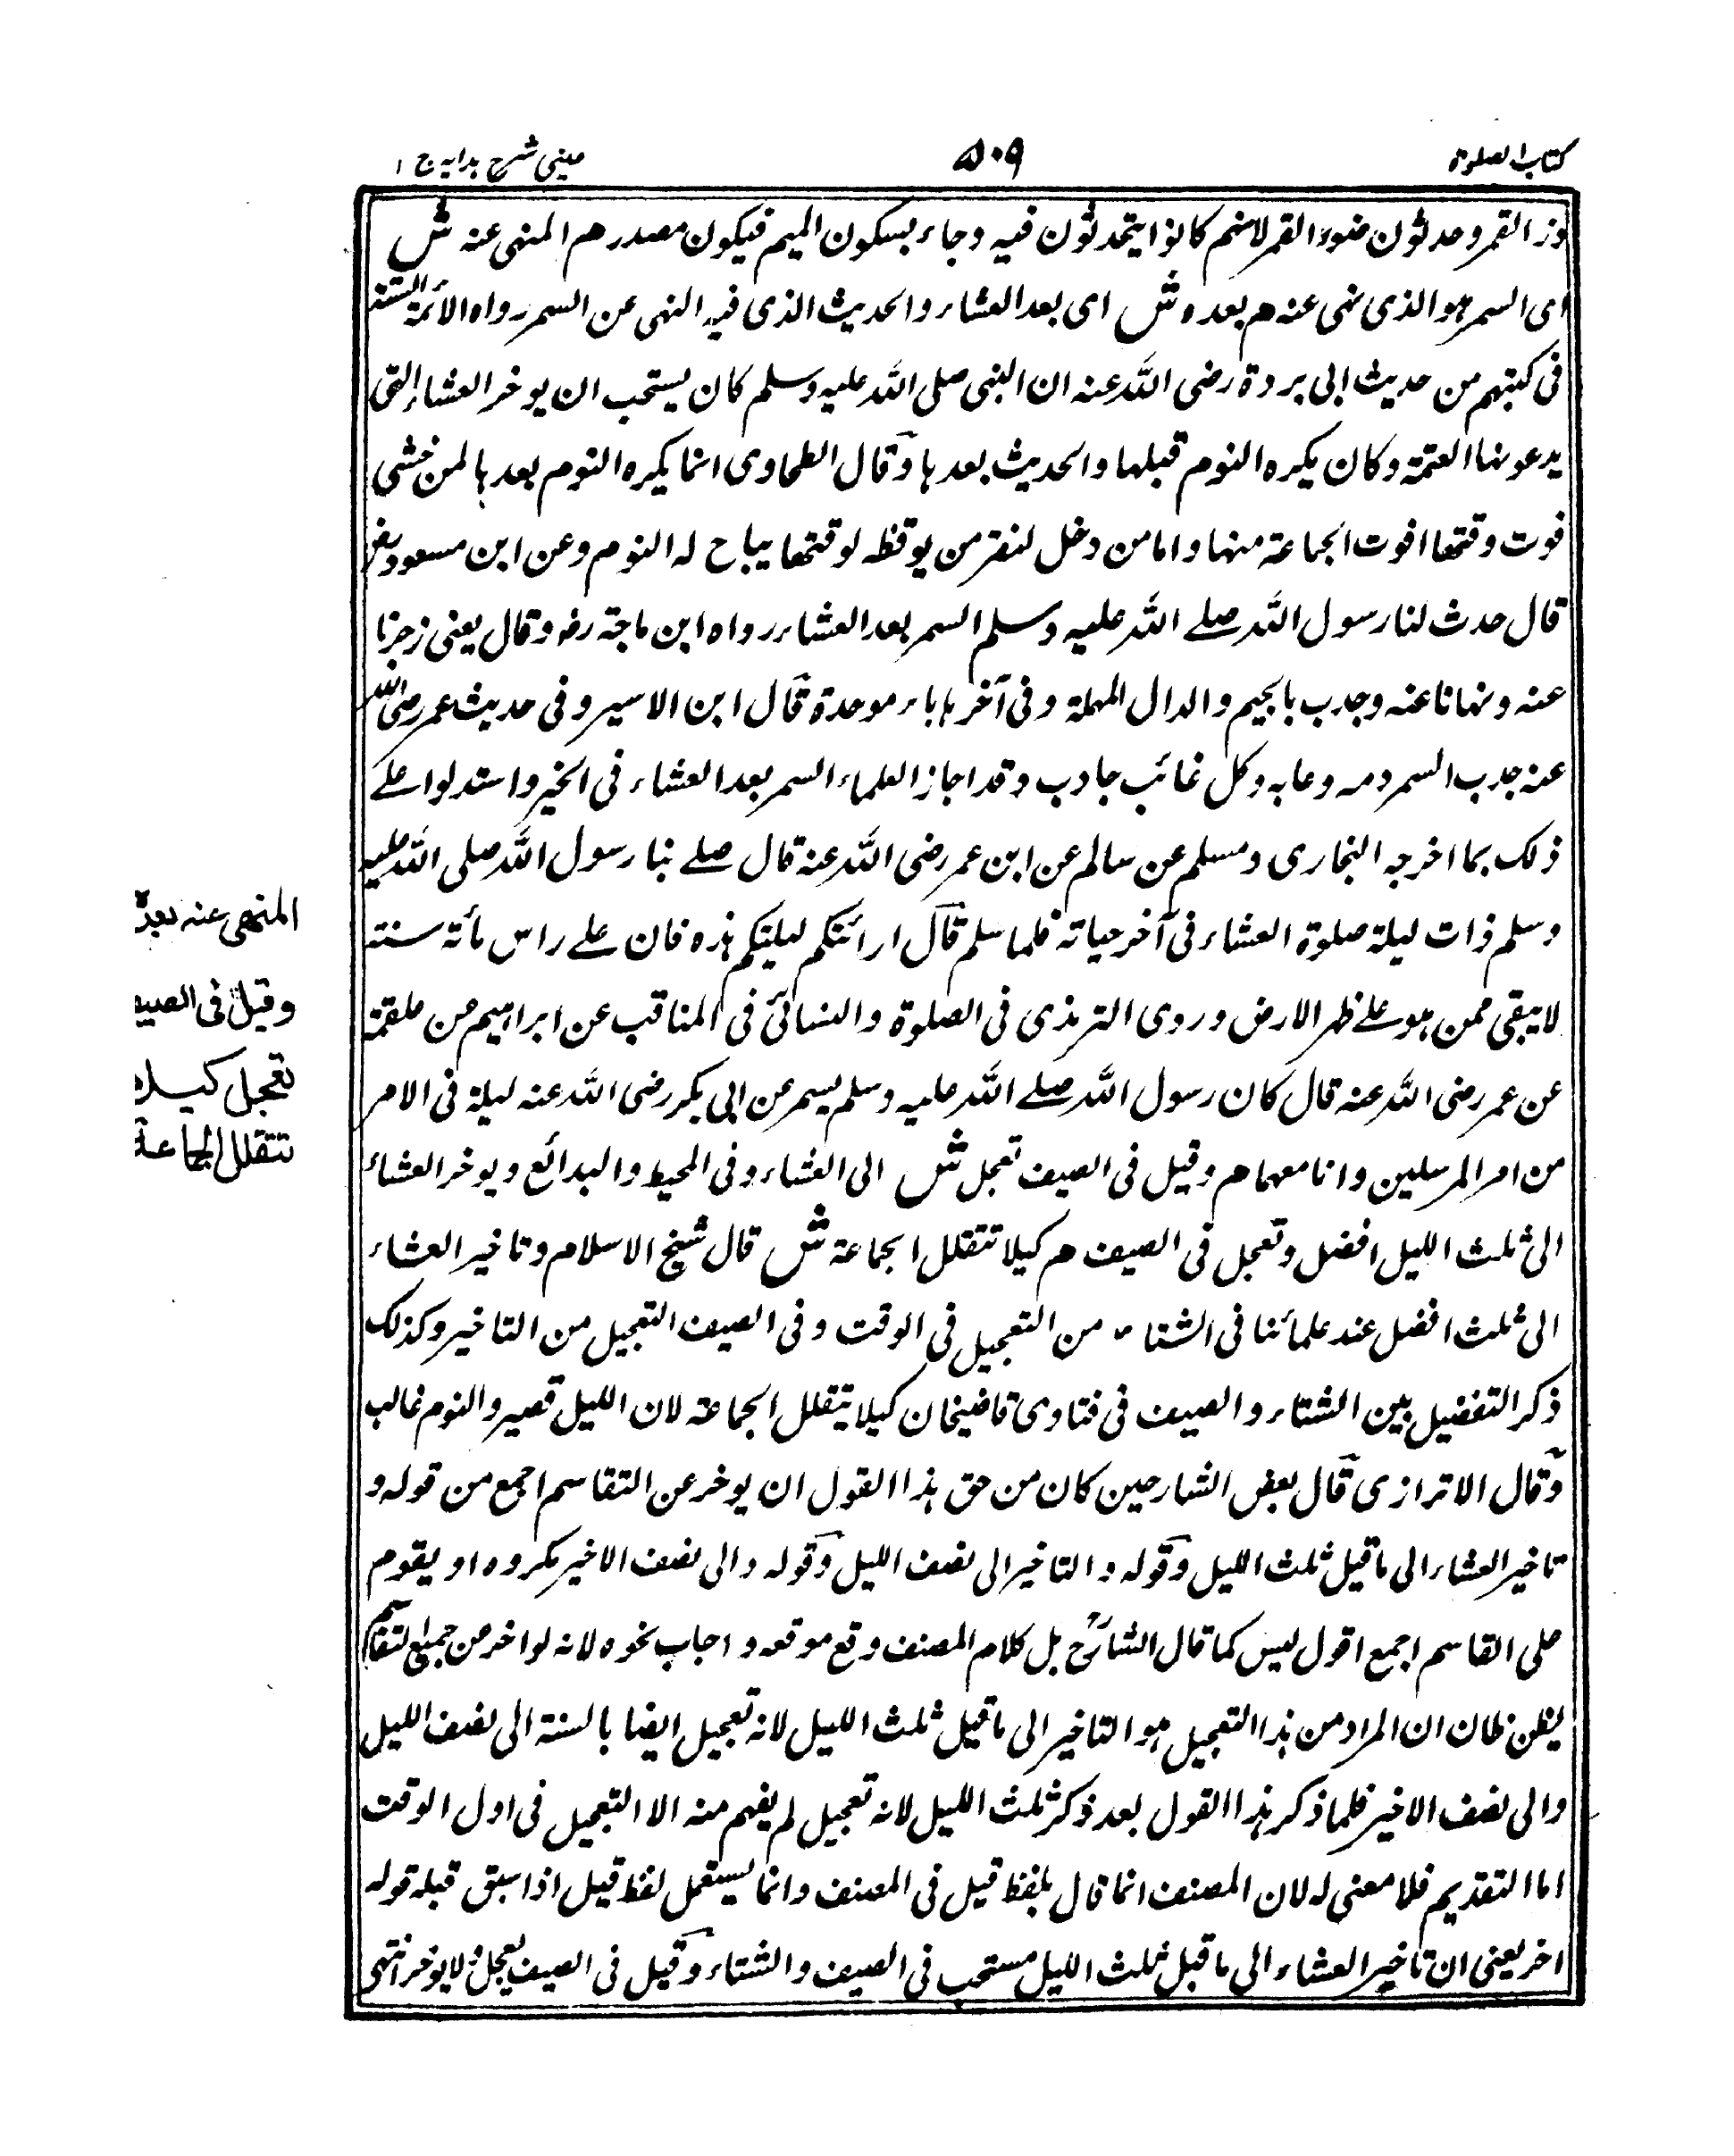 كتاب الصلوة
٥٠٩
عينى شرح هدايه ج ١
القمر وحدثون ضوء القمر لانهم كانوا يتحدثون فيه وجاء بسكون الميم فيكون مصدر هم المنهى عنه ش
اى السمر هو الذى نهى عنه هم بعده ش اى بعد العشاء والحديث الذى فيه النهى عن السمر رواه الائمة الستة
فى كتبهم من حديث ابى بردة رضى الله عنه ان النبى صلى الله عليه وسلم كان يستحب ان يوخر العشاء التى
يدعونها العتمة وكان يكره النوم قبلها والحديث بعدها وقال الطحاوى انما يكره النوم بعدها لمن خشى
فوت وقتها افوت الجماعة منها واما من وخل لنفر من يوقظه لوقتها يباح له النوم وعن ابن مسعود رض
قال حدث لنا رسول الله صلے الله عليه وسلم السمر بعد العشاء رواه ابن ماجة رض وقال يعنى زجرنا
عنه ونهانا عنه وجدب بالجيم والدال المهملة وفى آخرها باء موحدة قال ابن الاسير وفى حديث عمر رضى الله
عنه جدب السمر دمه وعابه وكل غائب جادب وقد اجاز العلماء السمر بعد العشاء فى الخير واستدلوا علے
ذلك بما اخرجه البخارى ومسلم عن سالم عن ابن عمر رضى الله عنه قال صلے بنا رسول الله صلى الله عليه
وسلم ذات ليلة صلوة العشاء فى آخر حياته فلما سلم قال ارائتكم ليلتكم هذه فان علے راس مائة سنته
لايبقى ممن هو علے ظهر الارض وروى الترمذى فى الصلوة والنسائى فى المناقب عن ابراهيم عن علقمة
عن عمر رضى الله عنه قال كان رسول الله صلے الله عليه وسلم يسمر عن ابى بكر رضى الله عنه ليلة فى الامر
من امر المرسلين وانا معهما هم وقيل فى الصيف تعجل ش اى العشاء وفى المحيط والبدائع ويوخر العشاء
الى ثلث الليل افضل وتعجل فى الصيف هم كيلا تتقلل الجماعة ش قال شيخ الاسلام وتاخير العشاء
الى ثلث افضل عند علمائنا فى الشتاء من التعجيل فى الوقت وفى الصيف التعجيل من التاخير وكذلك
ذكر التفضيل بين الشتاء والصيف فى فتاوى قاضيخان كيلا يتقلل الجماعة لان الليل قصير والنوم غالب
وقال الاترازى قال بعض الشارحين كان من حق هذا القول ان يوخر عن التقاسم اجمع من قوله و
تاخير العشاء الى ماقيل ثلث الليل وقوله والتاخير الى نصف الليل وقوله والى نصف الاخير مكروه او يقوم
على القاسم اجمع اقول ليس كما قال الشارح بل كلام المصنف وقع موقعه واجاب نحوه لانه لو اخر عن جميع التقاسيم
ليظن ظان ان المراد من هذا التعجيل هو التاخير الى ماقيل ثلث الليل لانه تعجيل ايضا بالسنة الى نصف الليل
والى نصف الاخير فلما ذكر هذا القول بعد ذكر ثلث الليل لانه تعجيل لم يفهم منه الا التعجيل فى اول الوقت
اما التقديم فلا معنى له لان المصنف انما قال بلفظ قيل فى المصنف وانما يستعمل لفظ قيل اذا سبق قبله قوله
اخر يعنى ان تاخير العشاء الى ماقبل ثلث الليل مستحب فى الصيف والشتاء وقيل فى الصيف يعجل ولا يوخر انتهى
المنهى عنه بعده
وقيل فى الصيف
تعجل كيلا
تتقلل الجماعة